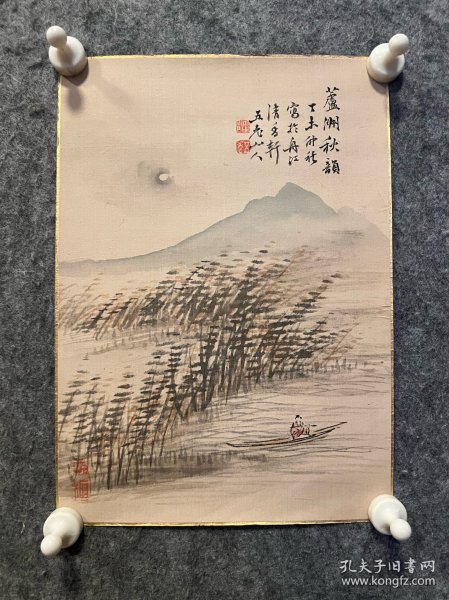 蘆湖秋韻
丁未仲秋
寫於丹江
清香軒
五老山人
孔夫子旧书网
www.kongfz.com